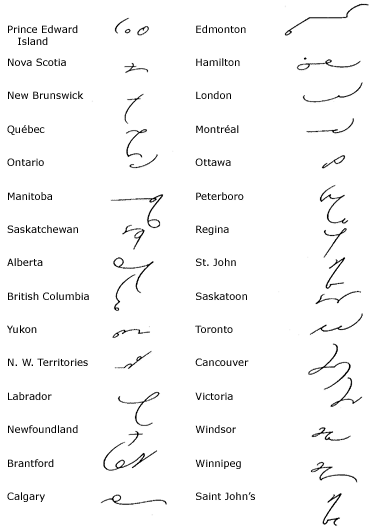 Prince Edward
Island
Nova Scotia
New Brunswick
Québec
Ontario
Manitoba
Saskatchewan
Alberta
British Columbia
Yukon
N. W. Territories
Labrador
Newfoundland
Brantford
Calgary
Edmonton
Hamilton
London
Montréal
Ottawa
Peterboro
Regina
St. John
Saskatoon
Toronto
Cancouver
Victoria
Windsor
Winnipeg
Saint John's